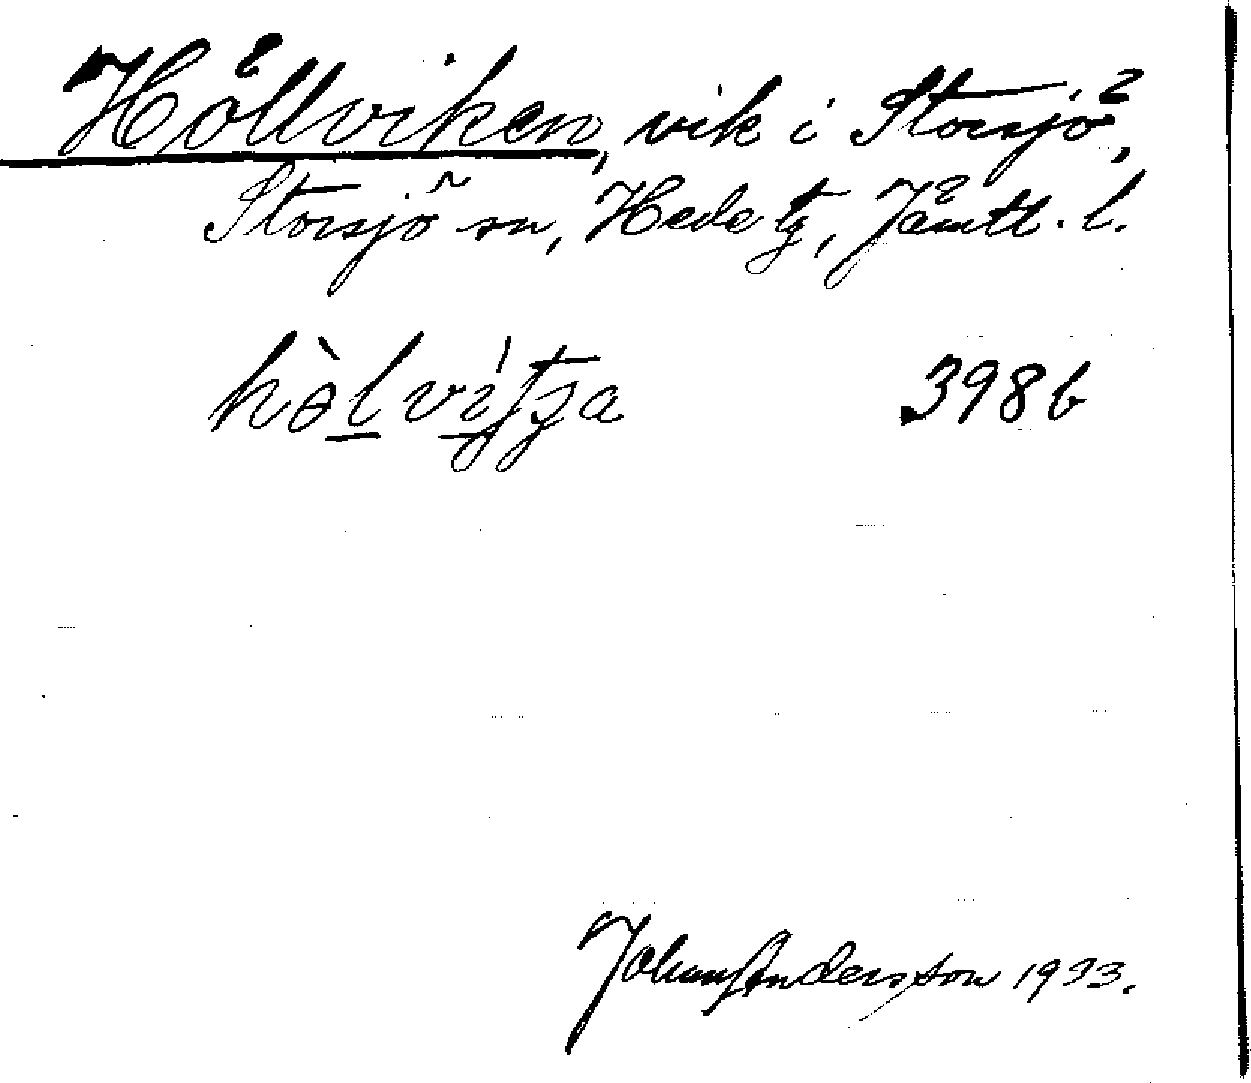 Hållviken, vik i Storsjö,
Storsjö sn, Hede tg, Jämtl. l.
hòlvítʃa 398 b
Johan Andersson 1933.